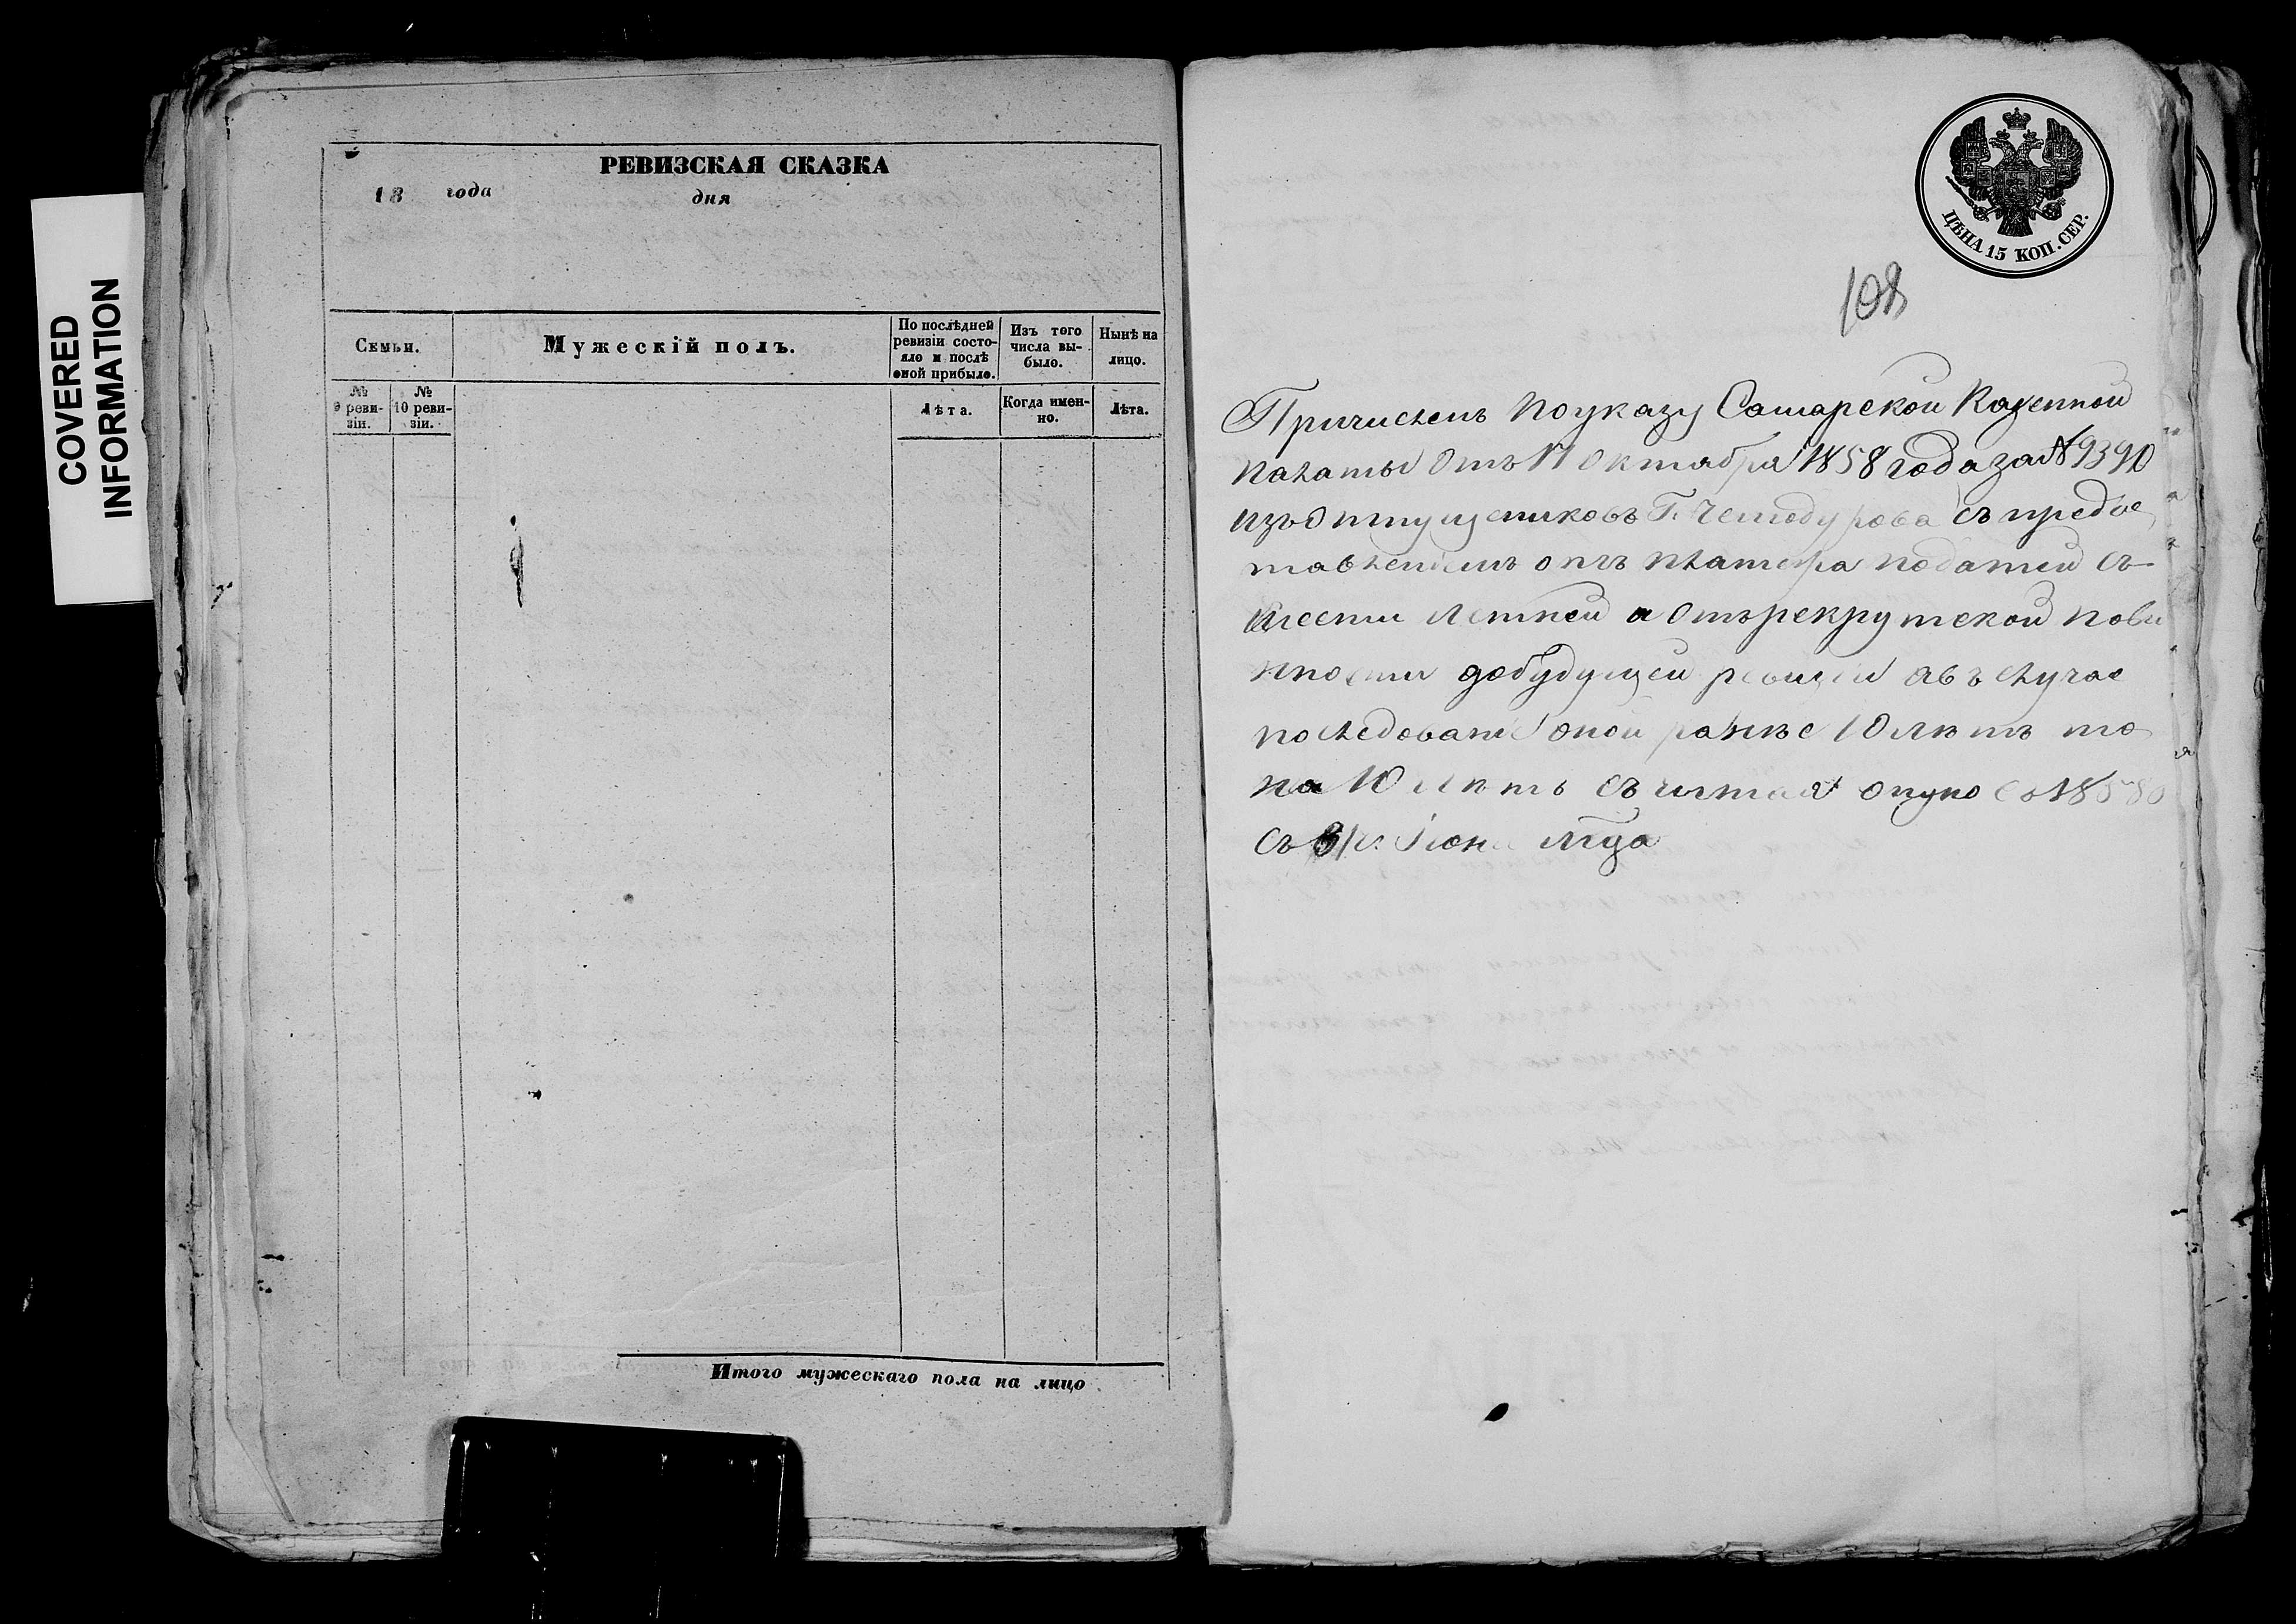 COVERED
INFORMATION
РЕВИЗСКАЯ СКАЗКА
18 года дня
Семьи.
Мужескій полъ.
По послѣдней
ревизіи состо-
яло и послѣ
оной прибыло.
Изъ того
числа вы-
было.
Нынѣ на
лицо.
№
9 реви-
зіи.
№
10 реви-
зіи.
Лѣта.
Когда имен-
но.
Лѣта.
Итого мужескаго пола на лицо
ЦѢНА 15 КОП. СЕР.
108
Причисленъ по указу Самарской Казенной
палаты отъ 11 октября 1858 года за № 9390
изъ отпущениковъ Г. Чемодурова съ предос
тавленіемъ отъ платежа податей съ
шести летней а отъ рекрутской пови
нности до будущей ревизіи а въ случае
последовати оной ранѣе 10 лѣтъ то
на 10 лѣтъ съ читая оную со 1858
съ Іюня мца